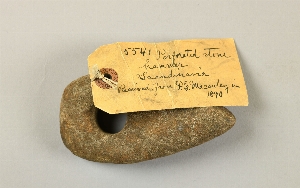 5541 Perforated stone
hammer.
Scandinavia
Received from
in
1890